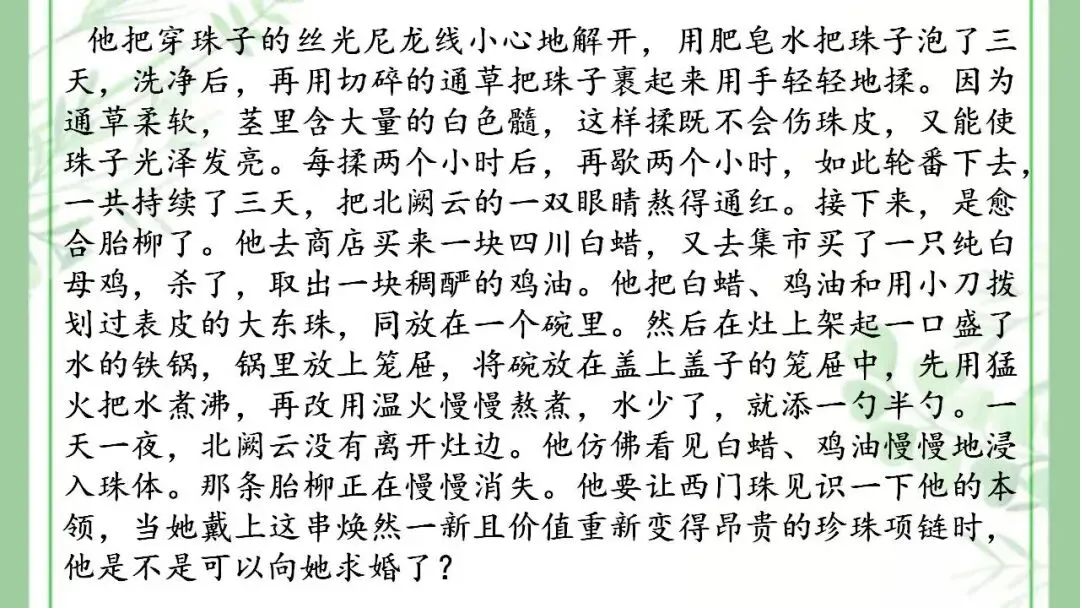 他把穿珠子的丝光尼龙线小心地解开，用肥皂水把珠子泡了三
天，洗净后，再用切碎的通草把珠子裹起来用手轻轻地揉。因为
通草柔软，茎里含大量的白色髓，这样揉既不会伤珠皮，又能使
珠子光泽发亮。每揉两个小时后，再歇两个小时，如此轮番下去，
一共持续了三天，把北阙云的一双眼睛熬得通红。接下来，是愈
合胎柳了。他去商店买来一块四川白蜡，又去集市买了一只纯白
母鸡，杀了，取出一块稠酽的鸡油。他把白蜡、鸡油和用小刀拨
划过表皮的大东珠，同放在一个碗里。然后在灶上架起一口盛了
水的铁锅，锅里放上笼屉，将碗放在盖上盖子的笼屉中，先用猛
火把水煮沸，再改用温火慢慢熬煮，水少了，就添一勺半勺。一
天一夜，北阙云没有离开灶边。他仿佛看见白蜡、鸡油慢慢地浸
入珠体。那条胎柳正在慢慢消失。他要让西门珠见识一下他的本
领，当她戴上这串焕然一新且价值重新变得昂贵的珍珠项链时，
他是不是可以向她求婚了？